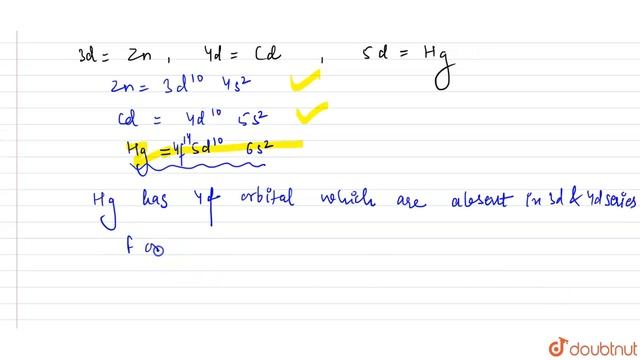 3d = Zn , 4d = Cd , 5d = Hg
Zn = 3d¹⁰ 4s²
Cd = 4d¹⁰ 5s²
Hg = 4f¹⁴ 5d¹⁰ 6s²
Hg has 4f orbital which are absent in 3d & 4d series
f or
doubtnut